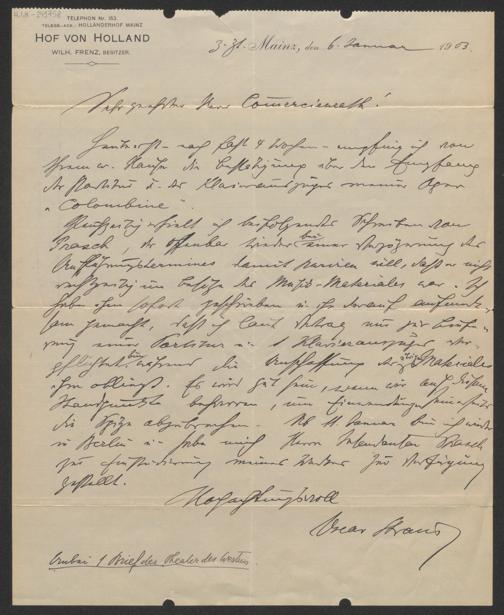 TELEPHON Nr. 153.
TELEGR.-ADR.: HOLLÄNDERHOF MAINZ
HOF VON HOLLAND
WILH. FRENZ, BESITZER.
z. Zt. Mainz, den 6. Januar 1903.
Sehr geehrter Herr Commercienrath!
Heute erst – nach fast 4 Wochen – empfing ich von
Ihrem w. Hause die Bestätigung über den Empfang
der Partitur u. des Klavierauszuges meiner Oper
„Colombine".
Gleichzeitig erhielt ich beifolgendes Schreiben von
Prasch, der offenbar wieder eine Verzögerung des
Aufführungstermines damit
rechtzeitig im Besitze des Musik-Materiales war. Ich
habe ihm sofort geschrieben u. ihn darauf aufmerk-
sam gemacht, daß ich laut Vertrag nur zur Liefe-
rung einer Partitur u. 1 Klavierauszuges ver-
pflichtet bin während die Anschaffung des Materiales
ihm obliegt. Es wird gut sein, wenn wir auf diesem
Standpunkte beharren, um Einwendungen
die Spitze abzubrechen. Ab 11 Januar bin ich wieder
in Berlin u. habe mich Herrn Intendanten Prasch
zur Einstudierung meines Werkes zur Verfügung
gestellt.
Hochachtungsvoll
Oscar Straus
Anbei 1 Brief des Theater des Westens